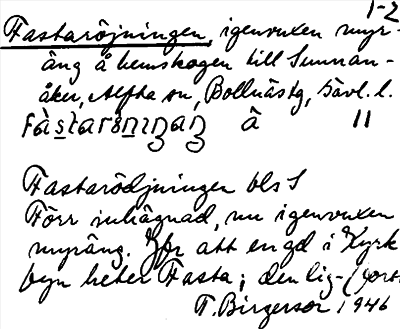 1-2
Fastaröjningen, igenvuxen myr-
äng å hemskogen till Sunnan-
åker, Alfta sn, Bollnäs tg, Gävl. l.
à 11
Fastarödjningen bls S
Förr inhägnad, nu igenvuxen
myräng. Jfr att en gd i Kyrk
byn heter Fasta; den lig- (forts
T. Birgersor 1946